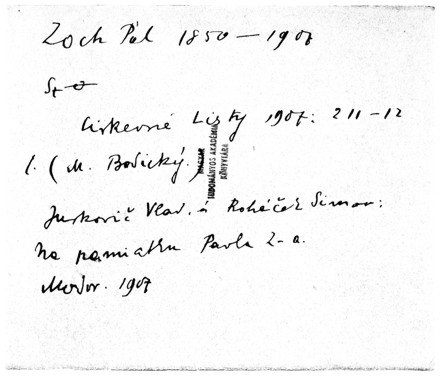 Zoch Pál 1850 – 1907
Cirkevné Listy 1907: 211–12
l. (M. Bodický.)
MAGYAR
TUDOMÁNYOS AKADÉMIA
KÖNYVTÁRA
Jurkovič Vlad. a Roháček Simon:
Na pamiatku Pavla Z–a.
Modor. 1907